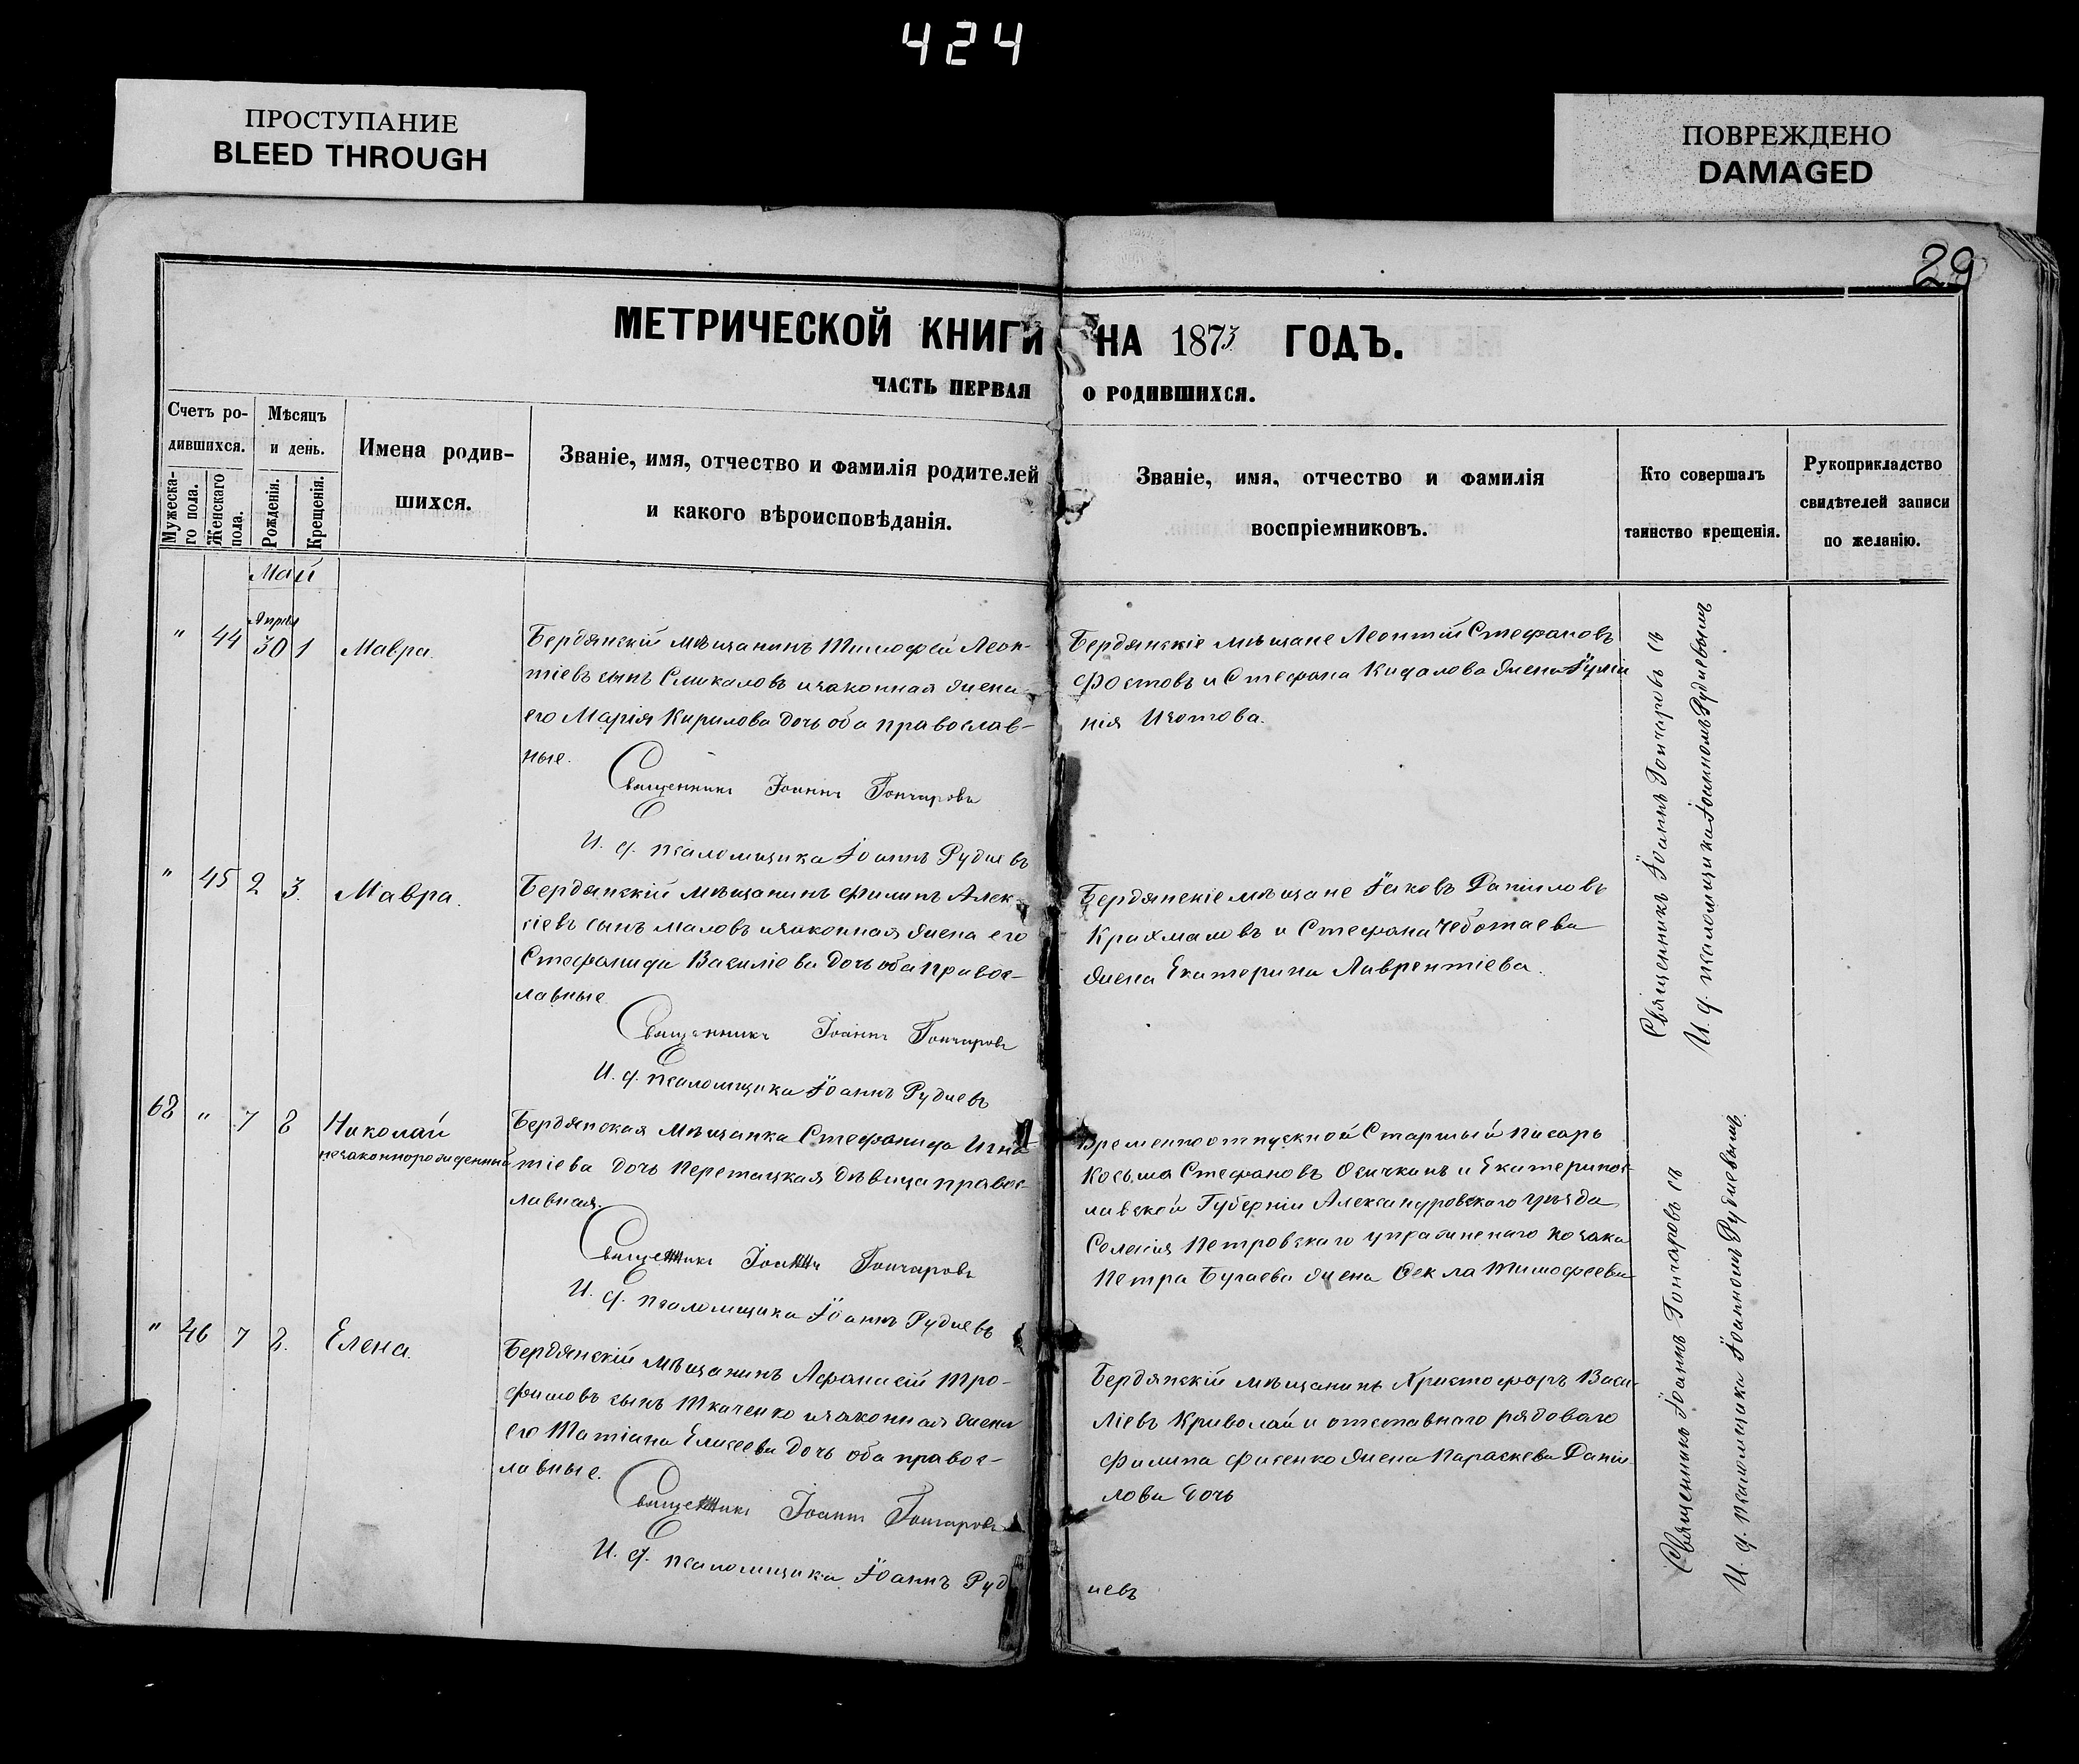 424
ПРОСТУПАНИЕ
BLEED THROUGH
ПОВРЕЖДЕНО
DAMAGED
29
МЕТРИЧЕСКОЙ КНИГИ НА 1873 ГОДЪ.
ЧАСТЬ ПЕРВАЯ О РОДИВШИХСЯ.
Счетъ ро-
дившихся.
Мужеска-
го пола.
Женскаго
пола.
Мѣсяцъ
и день.
Рожденія.
Крещенія.
Имена родив-
шихся.
Званіе, имя, отчество и фамилія родителей
и какого вѣроисповѣданія.
Званіе, имя, отчество и фамилія
воспріемниковъ.
Кто совершалъ
таинство крещенія.
Рукоприкладство
свидѣтелей записи
по желанію.
Май
Апрѣл
" 44 30 1 Мавра.
Бердянскій мѣщанинъ Тимофей Леон-
тіевъ сынъ и законная жена
его Марія Кирилова дочь оба православ-
ные.
Священникъ Іоаннъ Гончаровъ
И. д. псаломщика Іоаннъ Рудиевъ
Бердянскіе мѣщане Леонтій Стефановъ
Фостовъ и Стефана Кидалова жена
нія Изотова.
" 45 2 3. Мавра.
Бердянскій мѣщанинъ Филипъ Алек-
сіевъ сынъ Маловъ и законная жена его
Стефанида Василіева дочь оба правос-
лавные
Священникъ Іоаннъ Гончаровъ
И. д. псаломщика Іоаннъ Рудиевъ
Бердянскіе мѣщане Іаковъ Даниловъ
Крахмаловъ и Стефана Чеботаева
жена Екатерина Лаврентіева.
Священникъ Іоаннъ Гончаровъ съ
И. д. псаломщика Іоанномъ Рудиевымъ
68 " 7 8 Николай
незаконнорожденный
Бердянская мѣщанка Стефанида Игна-
тіева дочь Перетацкая дѣвица правос-
лавная.
Священникъ Іоаннъ Гончаровъ
И. д. псаломщика Іоаннъ Рудиевъ
Временноотпускной Старшый писарь
Косьма Стефановъ Осичкинъ и Екатеринос-
лавской Губерніи Александровскаго уѣзда
Селенія Петровскаго упраздненаго козака
Петра Бугаева жена Фекла Тимофеева
" 46 7 8. Елена.
Бердянскій мѣщанинъ Афанасій Тро-
фимовъ сынъ Ткаченко и законная жена
его Татіана Елисеева дочь оба правос-
лавные.
Священникъ Іоаннъ Гончаровъ
И. д. псаломщика Іоаннъ Рудиевъ
Бердянскій мѣщанинъ Христофоръ Васи-
ліевъ Криволай и отставнаго рядоваго
Филипа Фисенко жена Параскева Дании-
лова дочь
Священникъ Іоаннъ Гончаровъ съ
И. д. псаломщика Іоанномъ Рудиевымъ